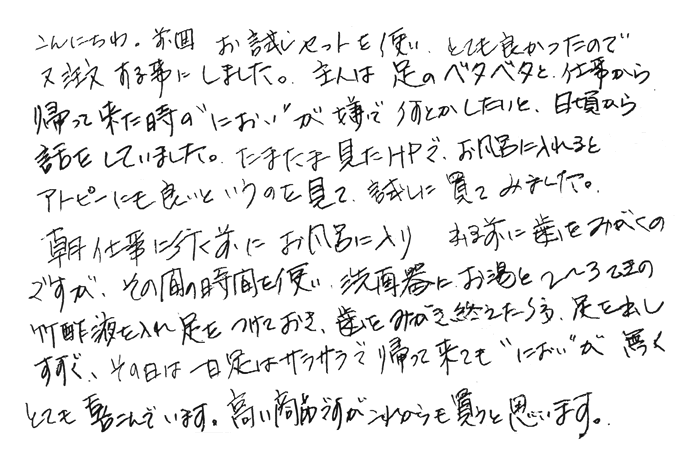 こんにちわ。前回 お試しセットを使い、とても良かったので
又注文する事にしました。主人は 足のベタベタと、仕事から
帰って来た時の"におい"が嫌で何とかしたいと、日頃から
話をしていました。たまたま見たHPで、お風呂に入れると
アトピーにも良いというのを見て、試しに買てみました。
朝仕事に行く前に お風呂に入り 出る前に歯をみがくの
ですが、その間の時間を使い、洗面器にお湯と2〜3てきの
竹酢液を入れ足をつけておき、歯をみがき終えたら、足を出し
すすぐ、その日は一日足はサラサラで帰って来ても"におい"が 無く
とても喜こんでいます。高い商品ですがこれからも買うと思います。